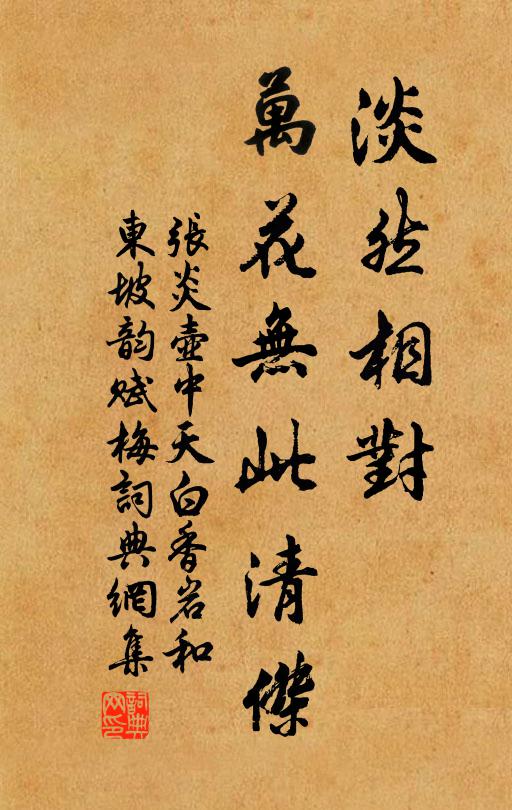 淡然相對
萬花無此清傑
張炎壺中天白香岩和
東坡韵賦梅詞典網集
詞典网印